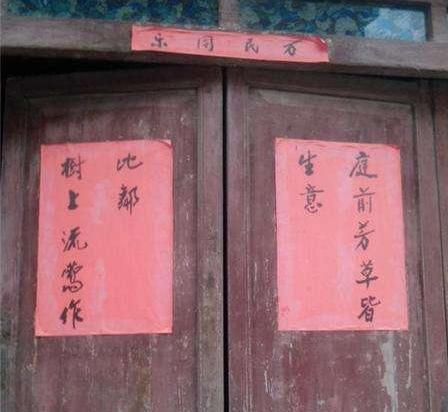 万民同乐
庭前芳草皆
生意
樹上流鶯作
比鄰